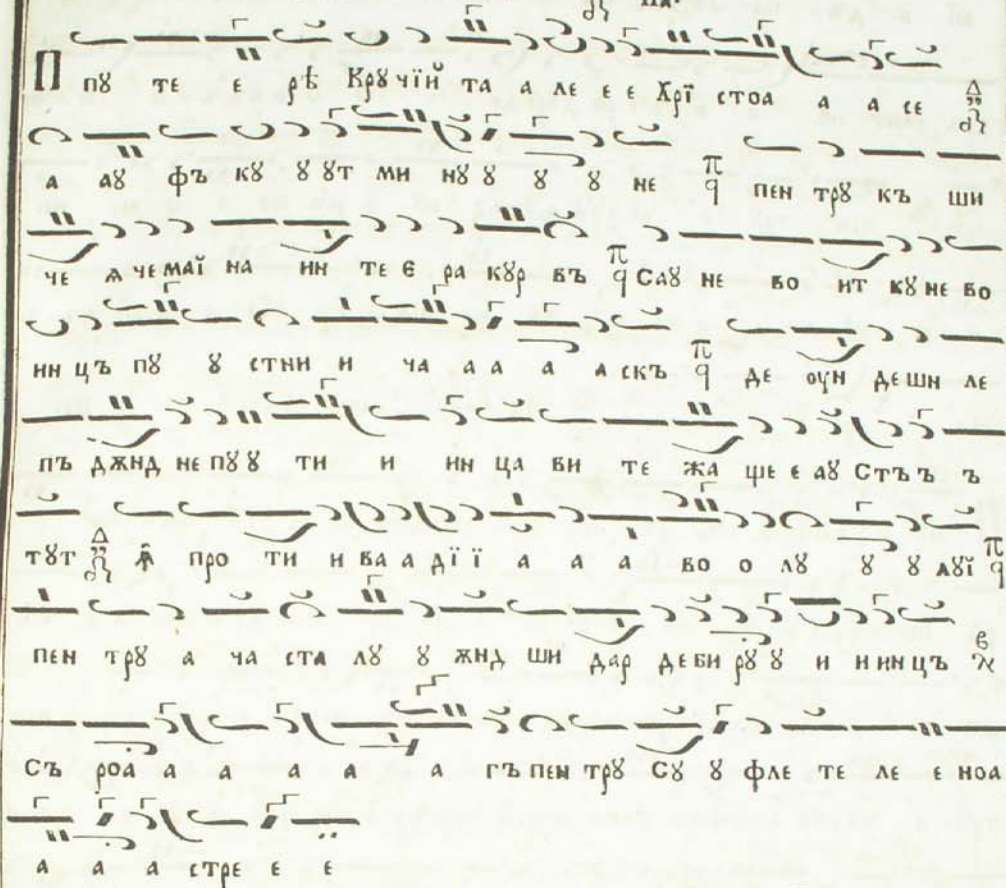 П пȣ те е рѣ Крȣчїй та а ле е е Хрї стоа а а се
а аȣ фъ кȣ ȣ ȣт ми нȣ ȣ ȣ ȣ не π q пен трȣ къ ши
че ѫ че маї на ин те е ра кȣр въ π q Саȣ не во ит кȣ не во
ин цъ пȣ ȣ стни и ча а а а а скъ π q де оун де шн ле
пъ джнд не пȣ ȣ ти и ин ца ви те жа ще е аȣ Стъ ъ ъ
тȣт про ти и ва а дї ї а а а во о лȣ ȣ ȣ лȣї π q
пен трȣ а ча ста лȣ ȣ жнд ши дар де би рȣ ȣ и и ин цъ
Съ роа а а а а а гъ пен трȣ Сȣ ȣ фле те ле е ноа
а а а стре е е